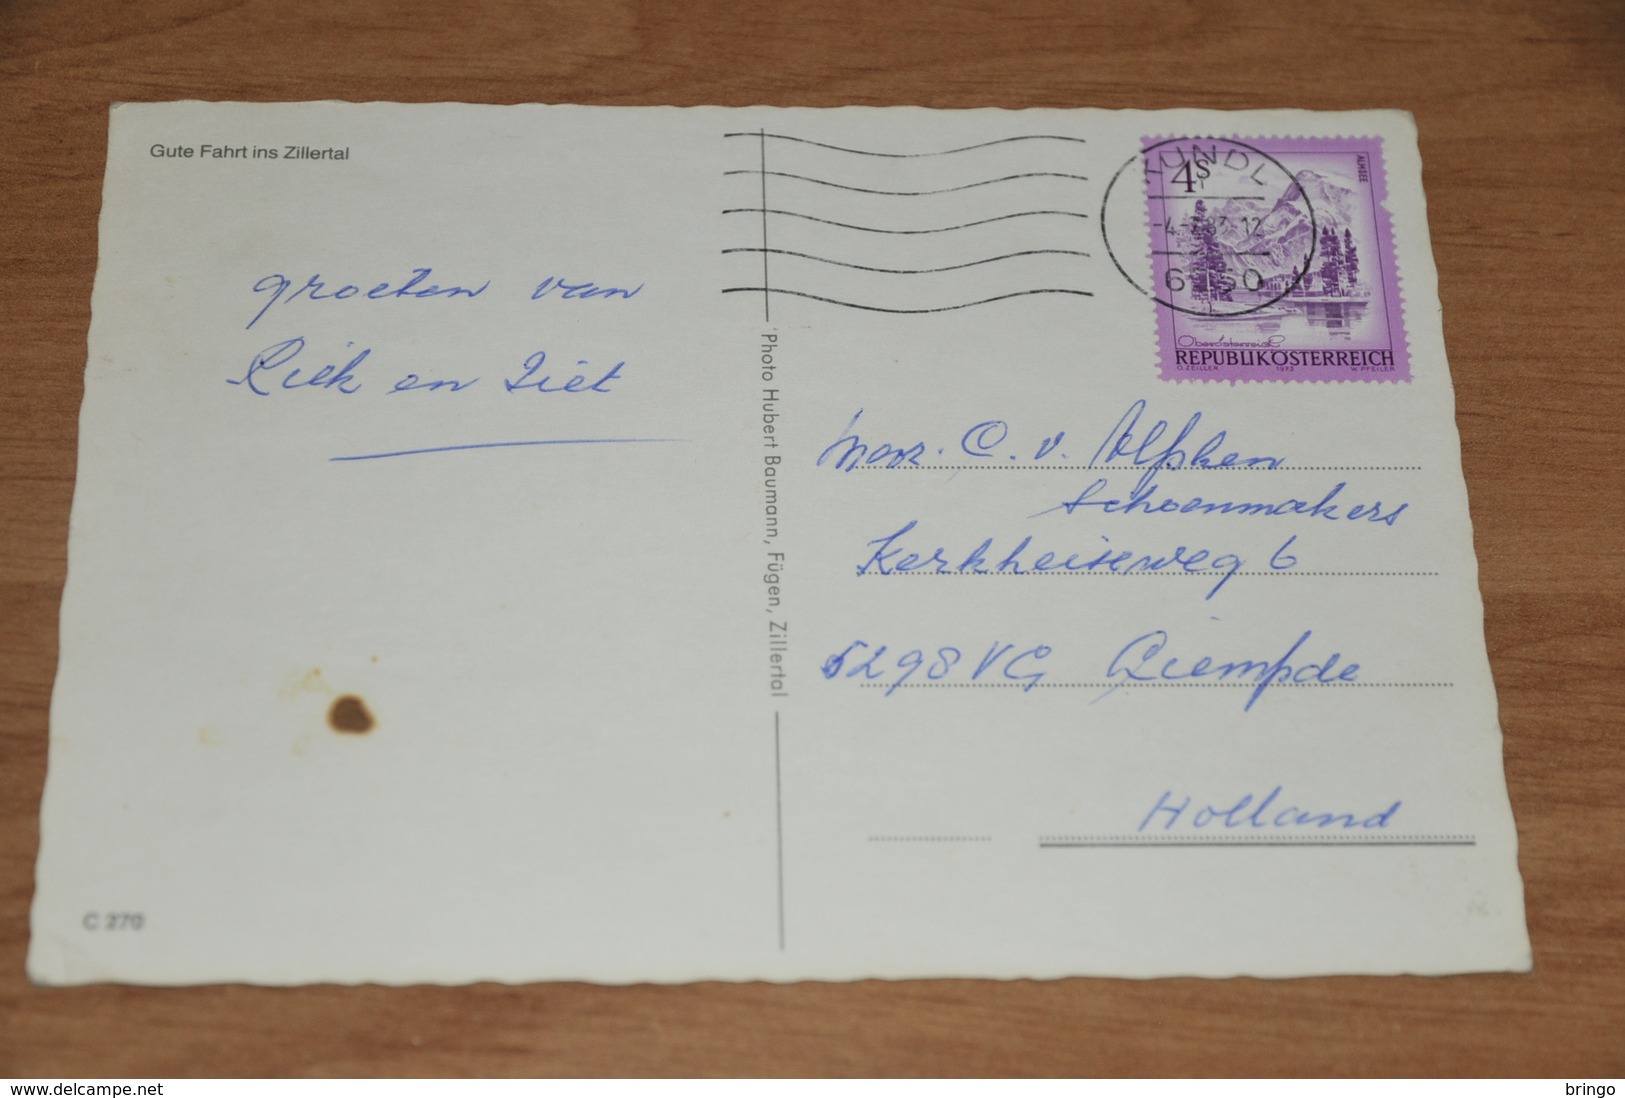 Gute Fahrt ins Zillertal
groeten van
Riek en Piet
C 270
Photo Hubert Baumann, Fügen, Zillertal
KUNDL
-4.-7.83-12
6250
4S
ALMSEE
Oberösterreich
REPUBLIK ÖSTERREICH
O. ZEILLER 1973 W. PFEILER
C. v. Alphen
Schoenmakers
6
5298 VG Liempde
Holland
www.delcampe.net
bringo